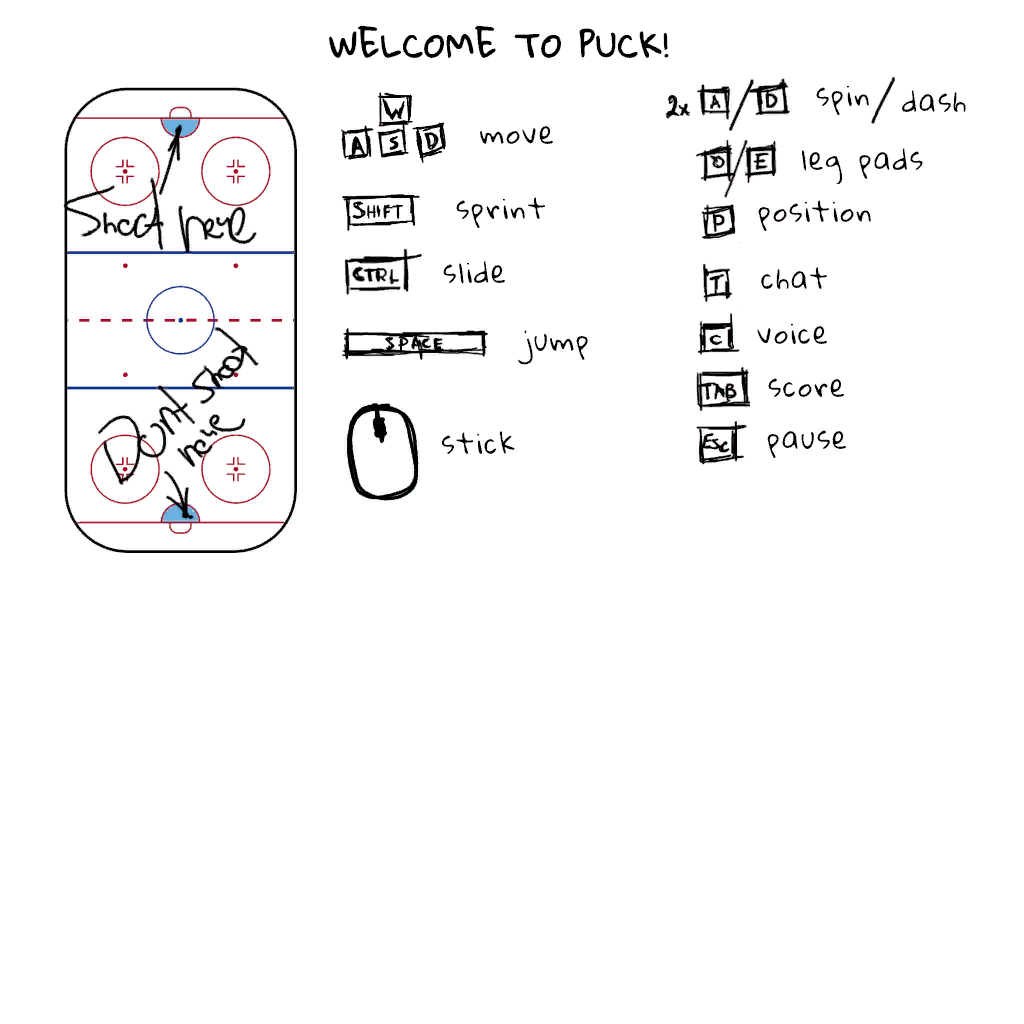 WELCOME TO PUCK!
Shoot here
Dont shoot
here
W
A S D move
SHIFT sprint
CTRL slide
SPACE jump
stick
2x A / D spin / dash
Q / E leg pads
P position
T chat
C voice
TAB score
ESC pause